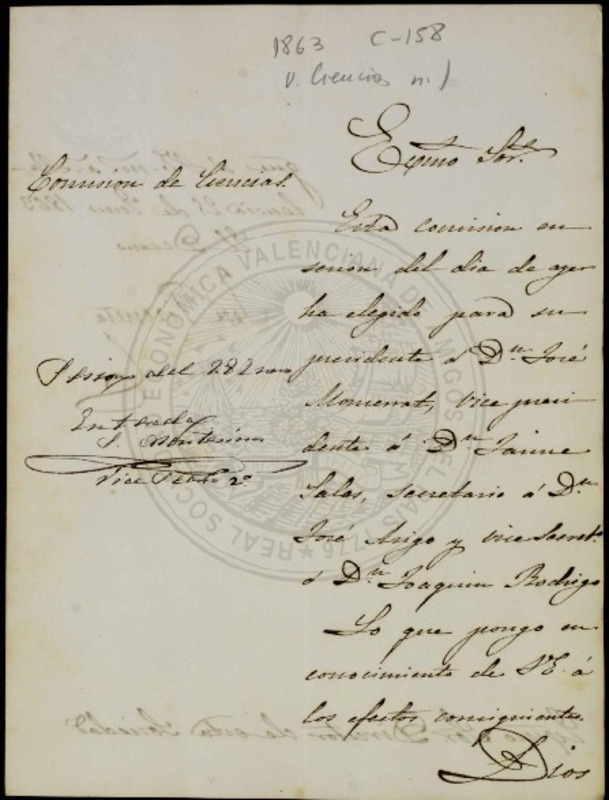 1863 C-158
V. Ciencias n. 1
Comision de Ciencias.
Exmo Sor.
Esta comision en
sesion del dia de ayer
ha elegido para su
presidente á Dn. José
Monserrat, Vice presi
dente á Dn. Jaime
Salas, secretario á Dn.
José Arigo y vice Secret.º
á Dn. Joaquin Rodrigo
Lo que pongo en
conocimiento de V.E. á
los efectos consiguientes.
Dios
Sesion del 28 Enero
Enterada
Vice 2º
REAL SOCIEDAD ECONOMICA VALENCIANA DE AMIGOS DEL PAIS 1776